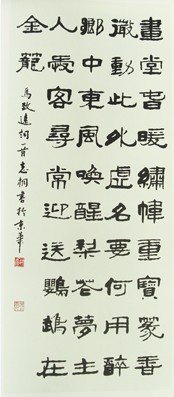 畫堂春暖繡幃重寶篆香
微動此外虛名要何用醉
鄉中東風喚醒梨花夢主
人愛客尋常迎送鸚鵡在
金籠
馬致遠詞一首桐書於京華